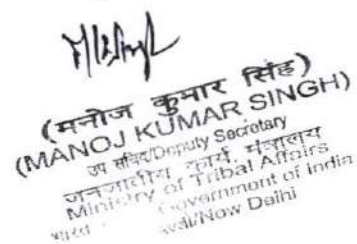 (मनोज कुमार सिंह)
(MANOJ KUMAR SINGH)
उप सचिव/Deputy Secretary
जनजातीय कार्य मंत्रालय
Ministry of Tribal Affairs
भारत Government of India
/New Delhi